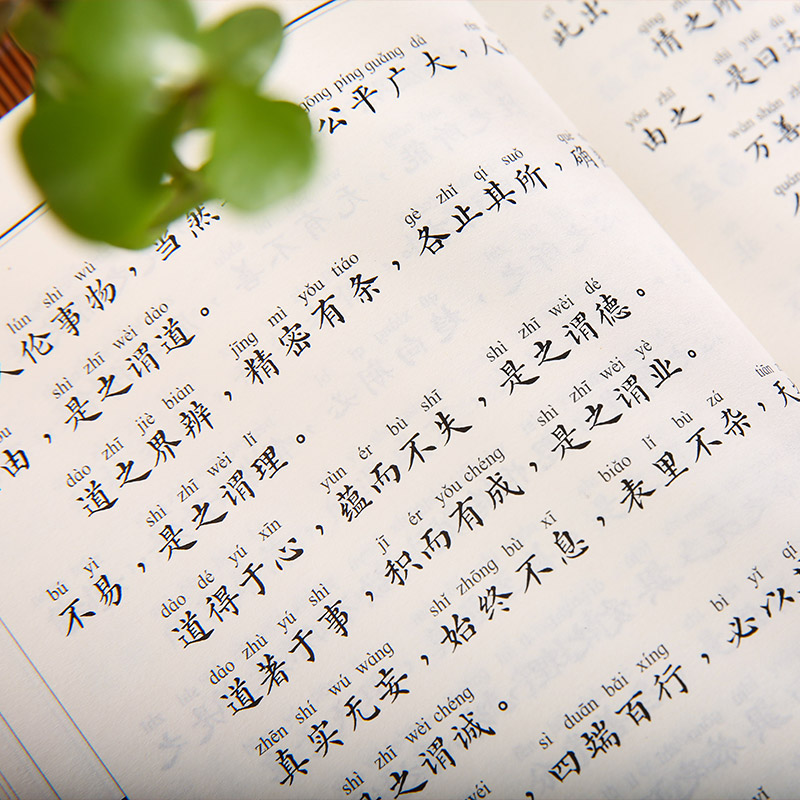 lún shì wù
人伦事物，当然
gōng píng guǎng dà
公平广大，人
shì zhī wèi dào
由，是之谓道。
dào zhī jiè biàn jīng mì yǒu tiáo gè zhǐ qí suǒ
道之界辨，精密有条，各止其所，确
bú yì shì zhī wèi lǐ
不易，是之谓理。
dào dé yú xīn yùn ér bù shī shì zhī wèi dé
道得于心，蕴而不失，是之谓德。
dào zhù yú shì jī ér yǒu chéng shì zhī wèi yè
道著于事，积而有成，是之谓业。
zhēn shí wú wàng shǐ zhōng bù xī biǎo lǐ bù zá tiān
真实无妄，始终不息，表里不杂，天
shì zhī wèi chéng
是之谓诚。
sì duān bǎi xíng bì yǐ qí
四端百行，必以
cǐ
此出
qíng zhī suǒ
情之所
yóu zhī shì yuē dá
由之，是曰达
wàn shàn
万善